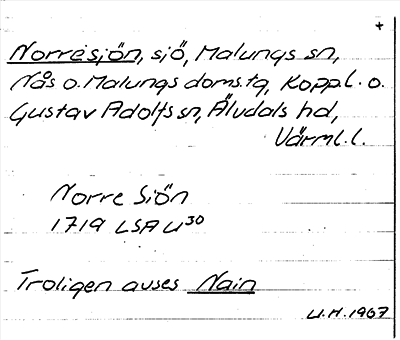 +
Norresjön, sjö, Malungs sn,
Nås o. Malungs doms.tg, Koppl. o.
Gustav Adolfs sn, Älvdals hd,
Värml. l.
Norre Siön
1719 LSA U30
Troligen avses Nain
U.H. 1967